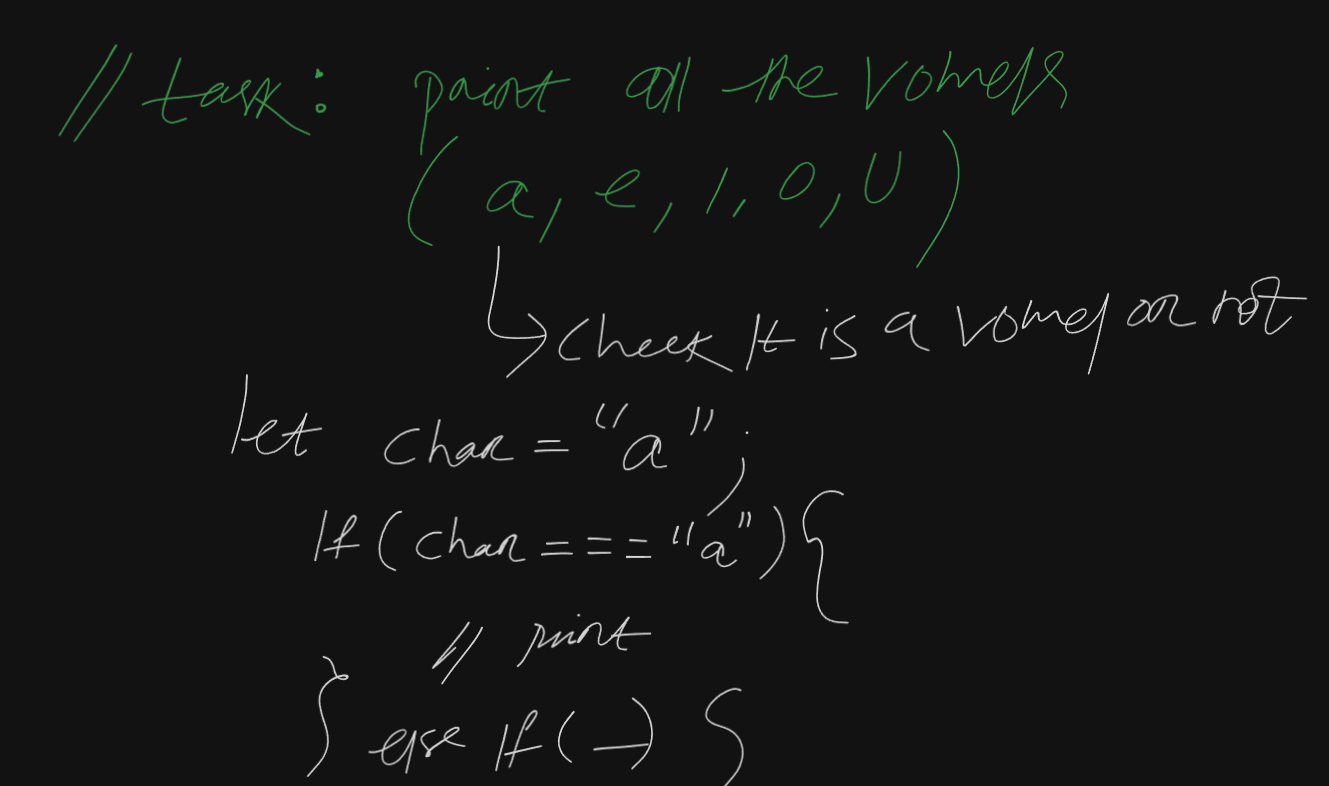 // task: print all the vowels
(a, e, i, o, u)
↳ Check It is a vowel or not
let char = "a";
If (char === "a") {
// print
} else If (—) {